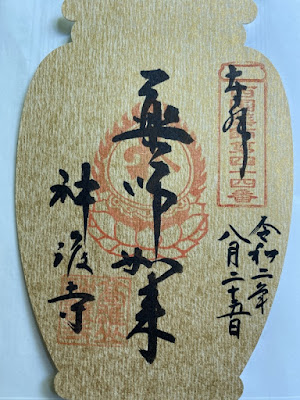 奉拝
西国薬師第四十四番
薬師如来
神護寺
令和二年
八月二十五日